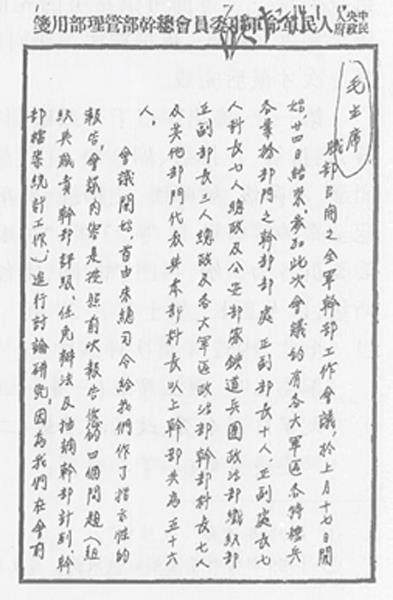 中央人民政府人民革命軍事委員會總幹部管理部用箋
毛主席
職部召開之全軍幹部工作會議，於上月十七日開
始，廿四日結束參加此次會議的有各大軍區各特種兵
各業務部門之幹部部處正副部長十人正副處長七
人科長七人總政及公安部隊鐵道兵團政治部組織部
正副部長三人總政及各大軍區政治部幹部科長七人
及其他部門代表與本部科長以上幹部共為五十六
人。
會議開始，首由朱總司令給我們作了指示性的
報告，會議內容是按照前次報告您的四個問題（組
織與職責幹部評級、任免辦法及抽調幹部計劃、幹
部檔案統計工作）進行討論研究，因為我們在會前